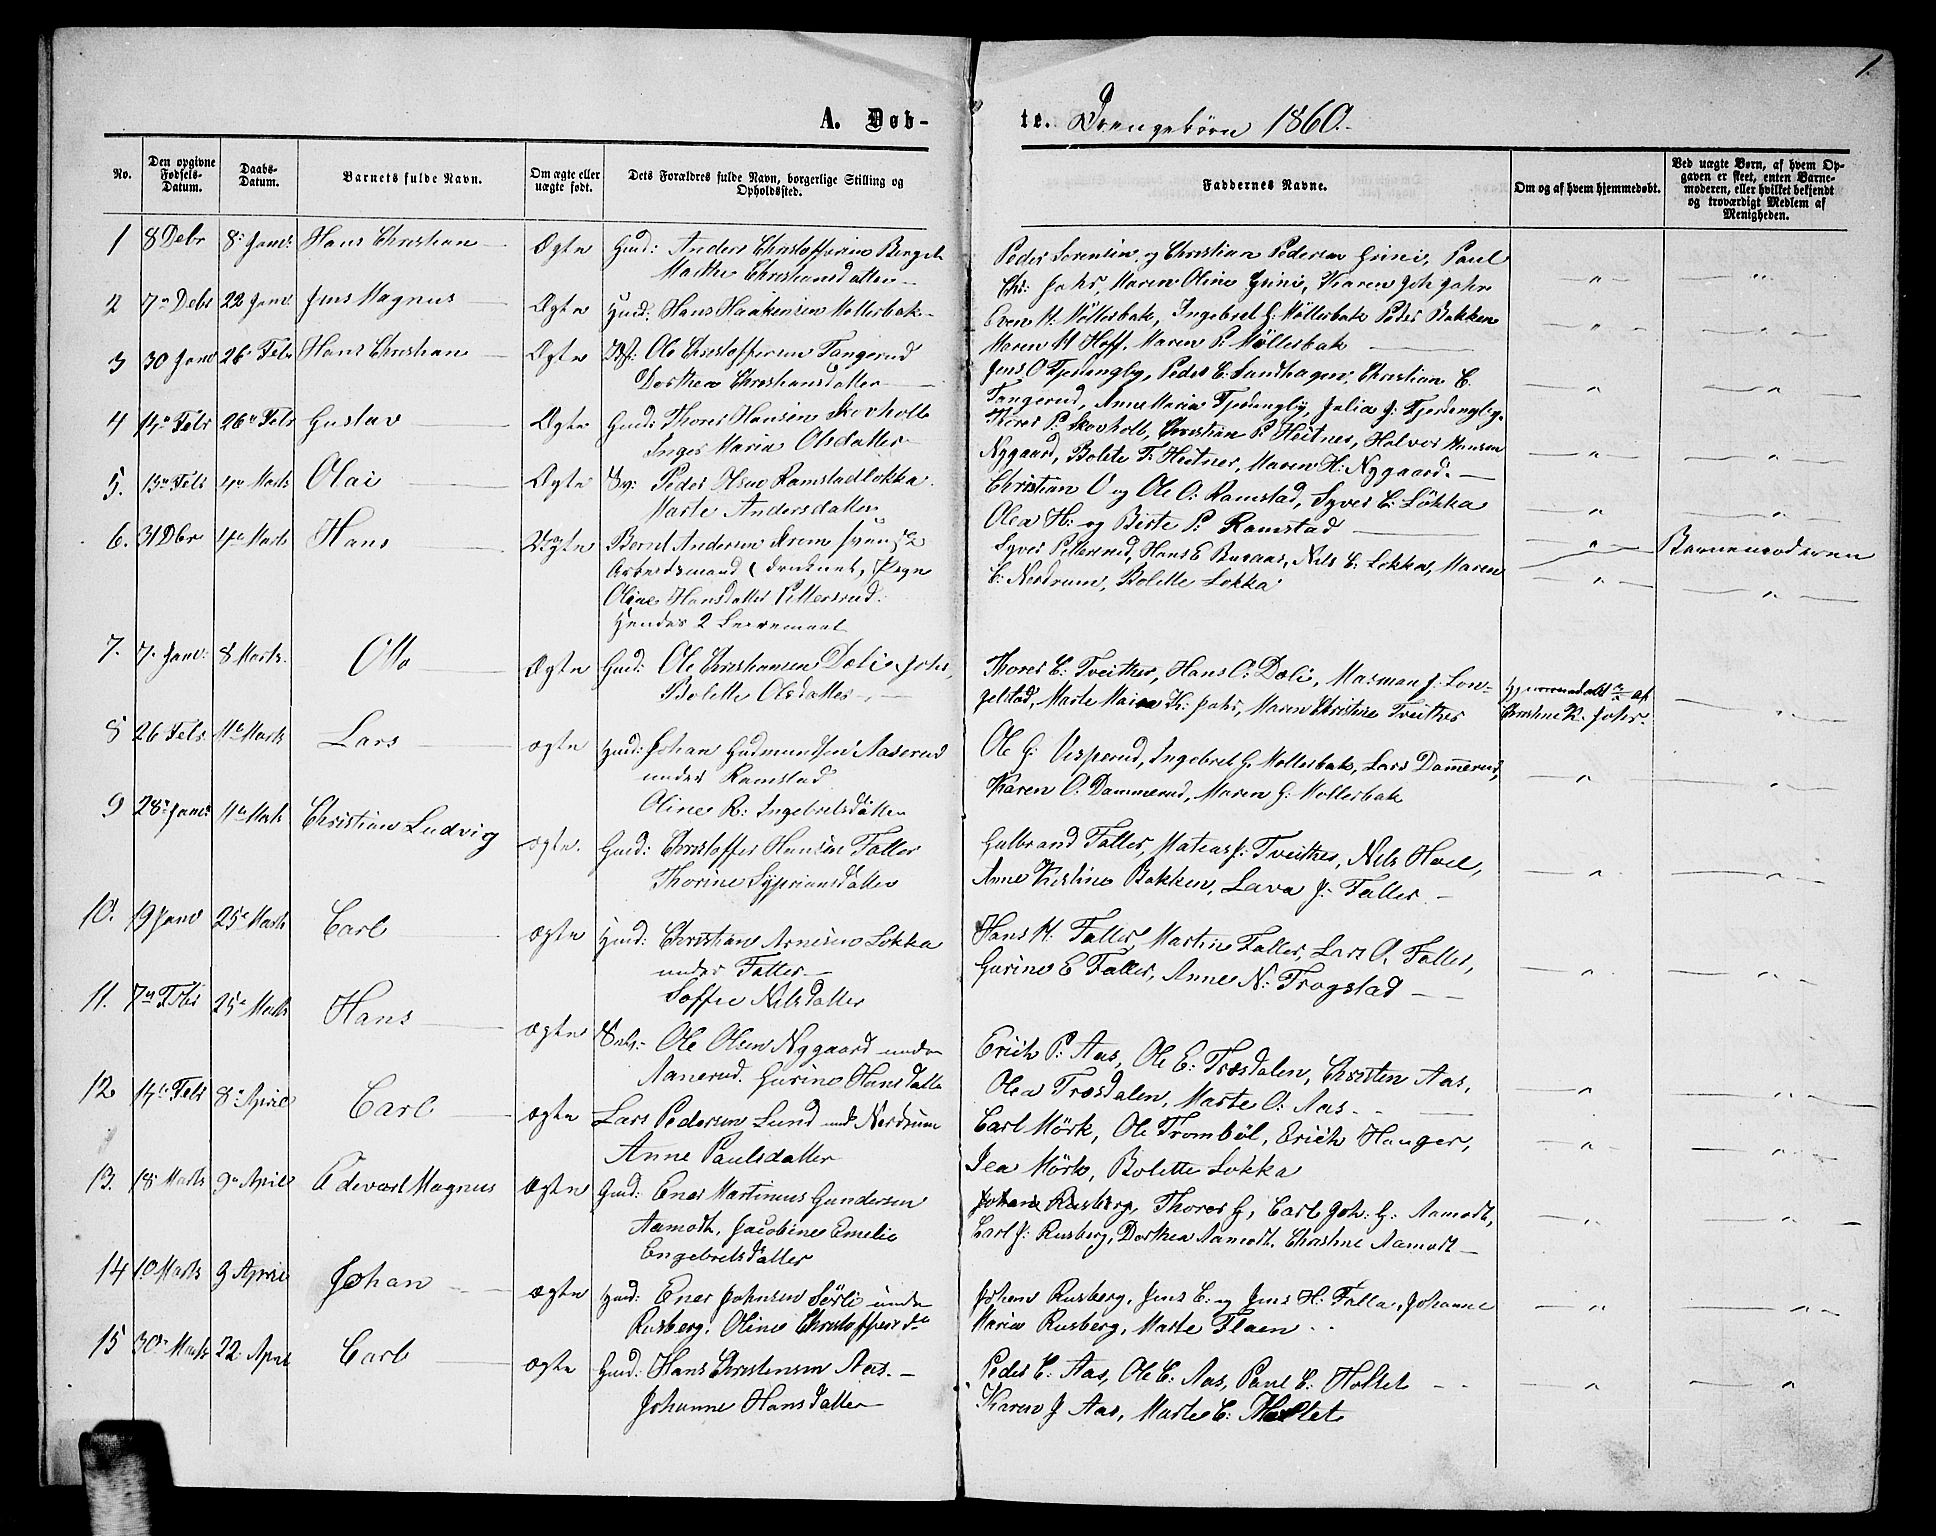 1
A. Døb-
te. Drengebørn 1860.
No.
Den opgivne Fødsels-Datum.
Daabs-Datum.
Barnets fulde Navn.
Om ægte eller uægte født.
Dets Forældres fulde Navn, borgerlige Stilling og Opholdssted.
Faddernes Navne.
Om og af hvem hjemmedøbt.
Ved uægte Børn, af hvem Op-
gaven er skeet, enten Barne-
moderen, eller hvilket bekjendt
og troværdigt Medlem af
Menigheden.
1 8 Debr 8 Janr Hans Christian Ægte Gmd: Anders Christoffersen
Marthe Christiansdatter
Peder Sorensen og Christian Pedersen Grini, Paul
Chr: Jahr, Maren Oline Grini, Karen Joh Jahr
2 7 Debr 22 Janr Jens Magnus Ægte Hmd: Hans Haakensen Mollerbak
Even H. Möllerbak, Ingebret G Möllerbak Peder Bakken
Maren H Hoff, Maren P. Möllerbak
3 30 Janr 26 Febr Hans Christian Ægte Ole Christoffersen Tangerud
Dorthea Christiansdatter
Jens O Fjedungby, Peder C. Sandhagen, Christian C.
Tangerud, Anne Maria Fjedungby, Julia J: Fjedungby
4 14 Febr 26 Febr Gustav Ægte Gmd: Thorer Hansen Skovholt
Inger Maria Olsdatter
Thorer P. Skovholt, Christian P. Heitner, Halvor Hansen
Nygaard, Bolete T. Heitner, Maren H: Nygaard.
5. 13 Febr 4 Marts Olai Ægte Peder Ramstadlokka
Marte Andersdatter
Christian O og Ole O. Ramstad, Syver C. Lökka
Olea H: og Birte P: Ramstad
6. 31 Dbr 4 Marts Hans Uægte Bernt Andersen
Arbeidsmand Pige
Oline Hansdatter Pittersrud.
Hendes 2
Syver Pittersrud, Hans E Buraas, Nils C. Lokka, Maren
C. Nordrum, Bolette Lokka
Barnemoderen
7. 7 Janr 8 Marts. Otto Ægte Gmd: Ole Christiansen Dæli
Bolette Olsdatter
Thorer C. Tveither, Hans O. Dæli, Masman J. Lon-
gelstad, Marte Maria Jahr, Maren Christine Tveither
af
Christine K. Jahr.
8 26 Febr 11 Marts Lars ægte Hmd: Johan Gudmundsen Aaserud
under Ramstad
Oline R: Ingebretsdatter
Ole G. Visperud, Ingebret G. Mollerbak, Lars Dammerud,
Karen O. Dammerud, Maren G: Mollerbak
9 28 Janr 11 Marts Christian Ludvig ægte. Gmd: Christoffer Hansen Faller
Thorine Syprians datter
Gulbrand Faller, Matias J: Tveither, Nils Hoel,
Anne Kirstine Bakken, Lava J: Faller
10. 19 Janr 25 Marts Carl ægte Hmd: Christian Arnesen Lokka
under Faller
Soffie Nilsdatter
Hans H. Faller, Martin Faller, Lars O, Faller,
Gurine E Faller, Anne N: Trogstad
11. 7 Febr 25 Marts Hans ægte Ole Olsen Nygaard under
Aanerud. Gurine Hansdatter
Erich P: Aas, Ole E. Træsdalen, Christen Aas,
Olea Træsdalen, Marte O: Aas.
12 14 Febr 8 April Carl ægte Lars Pedersen Lund und Nordrum
Anne Paulsdatter
Carl Mörk, Ole Trombøl, Erich Hanger,
Mörk, Bolette Lokka
13. 18 Marts 9 April Edevart Magnus Ægte Gmd: Ener Martinius Gundersen
Aamodt, Jacobine Emelie
Engebretsdatter
Johan Rusberg, Thorer G, Carl Joh: G: Aamodt,
Carl J: Rusberg, Dorthea Aamodt, Christine Aamodt
14 10 Marts 9 April Johan ægte Hmd: Ener Johnsen Sörli under
Rusberg, Oline Christoffersd
Johan Rusberg, Jens C. og Jens H: Falla, Johanne
Maria Rusberg, Marte Flaen
15 30 Marts 22 April Carl ægte Gmd: Hans Christensen Aas.
Johanne Hansdatter
Peder C. Aas, Ole C. Aas, Paul C. Holtet
Karen J Aas, Marte C. Holtet